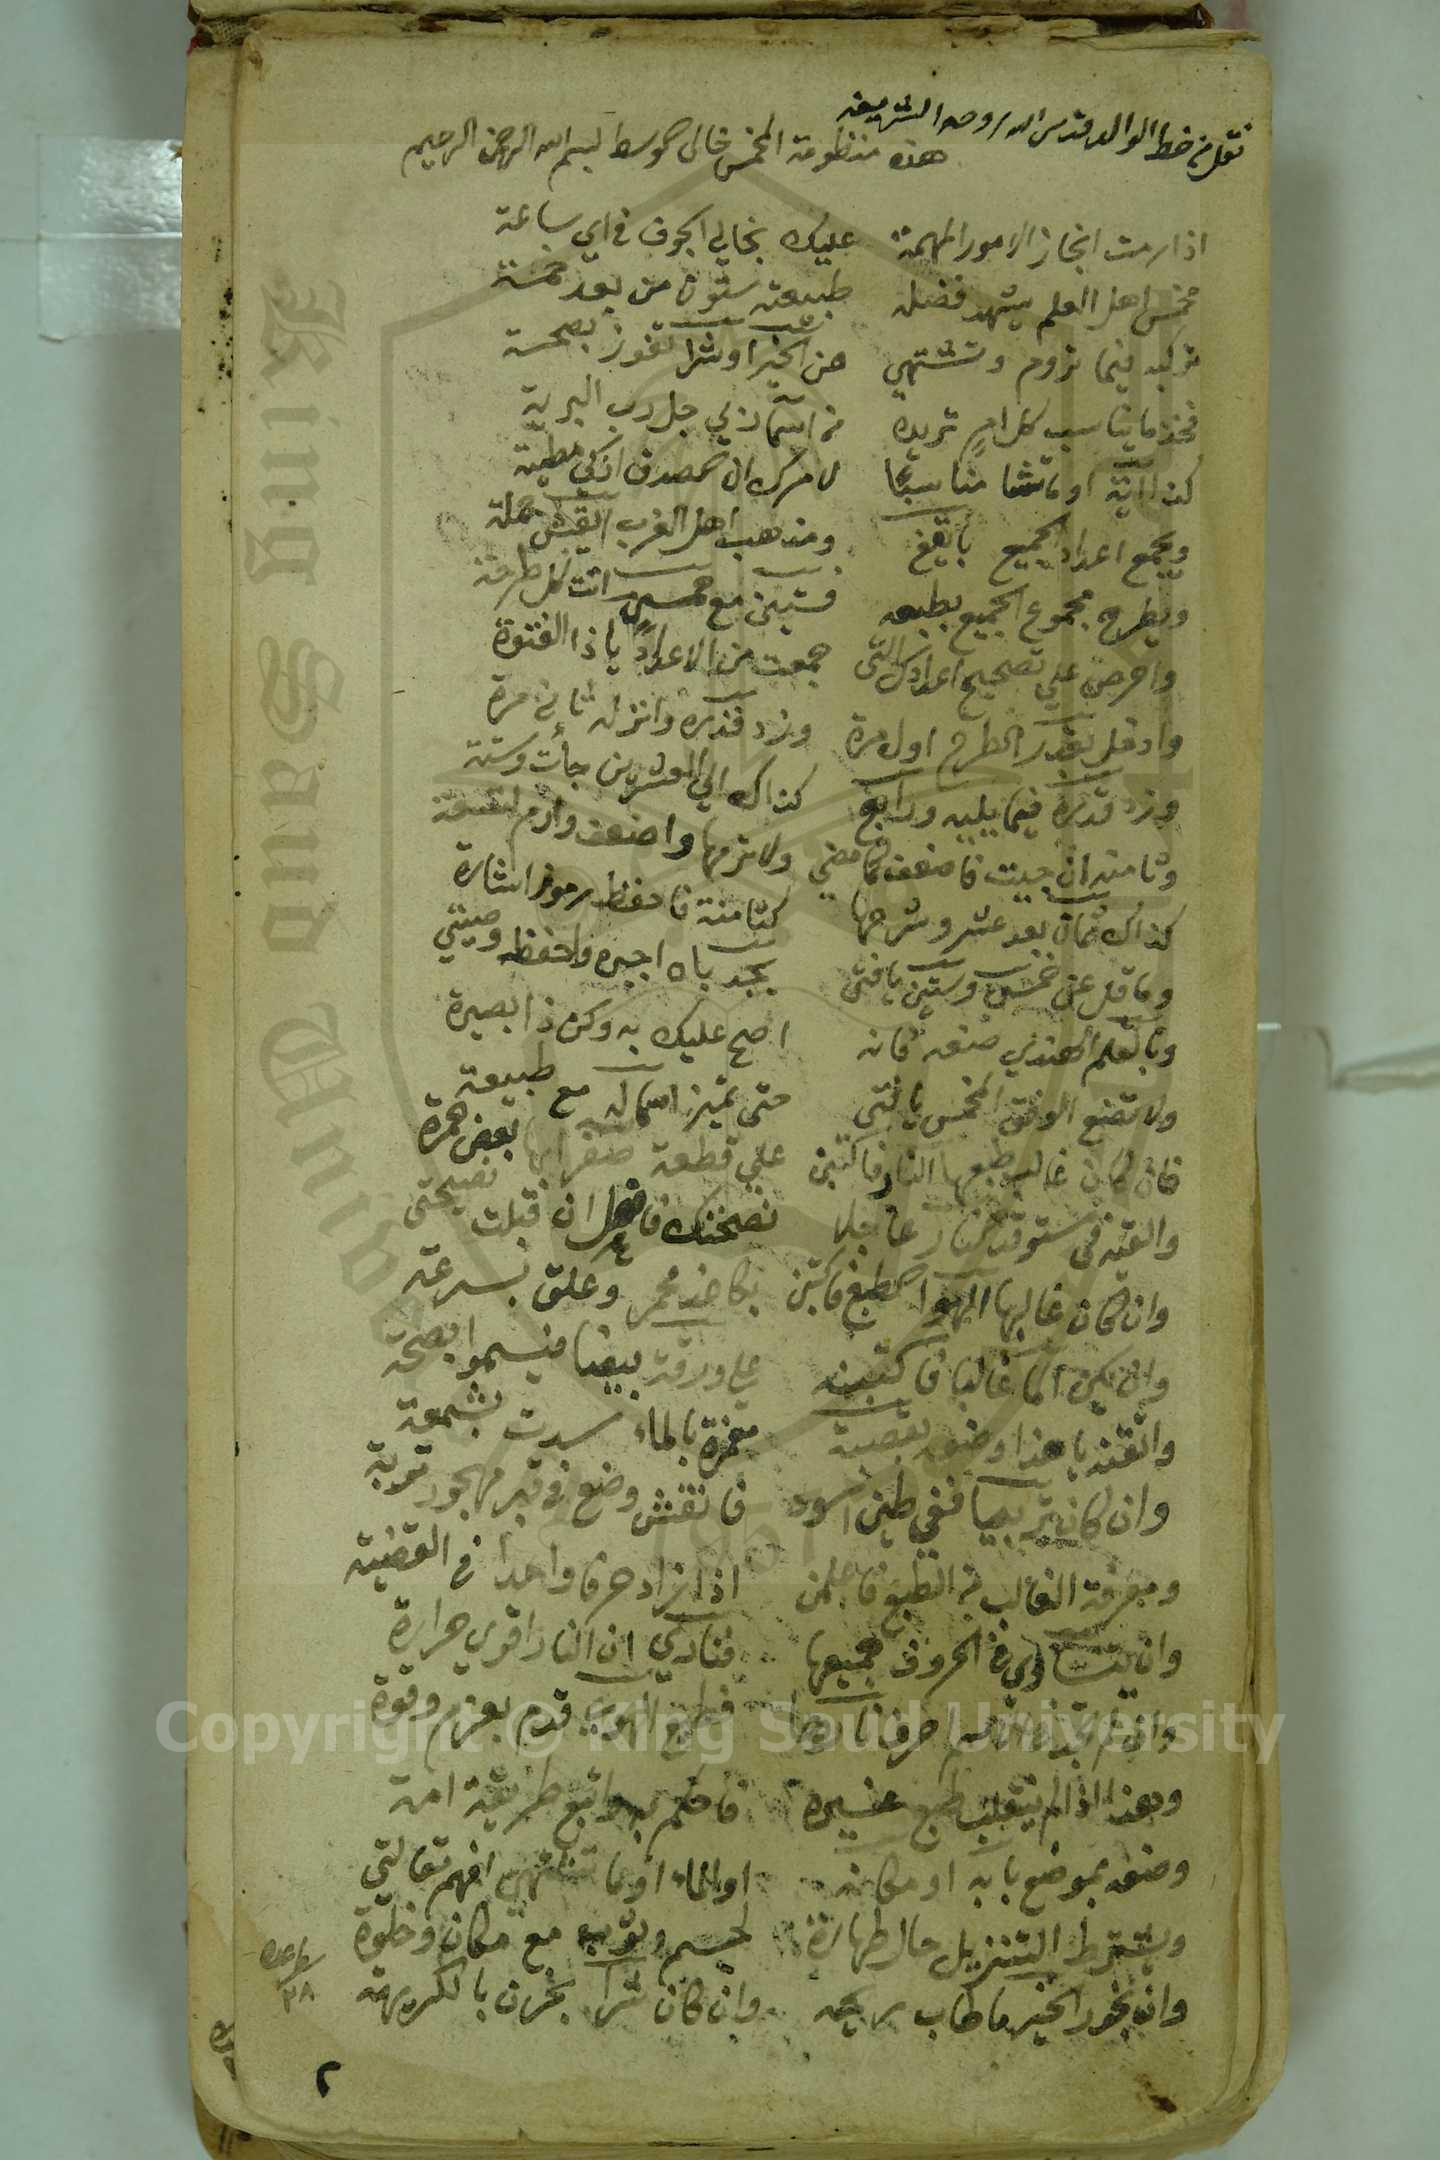 نقل من خط الوالد قدس الله روحه الشريفه
هذه منظومة المخمس خالي الوسط بسم الله الرحمن الرحيم
اذا رمت انجاز الامور المهمة عليك بخالي الجوف في اي ساعة
مخمس اهل العلم يشهد فضله طبيعته ستون من بعد خمسة
تركبه فيما تروم وتشتهي من الخير او شرا تفوز بصحة
فخذ ما يناسب كل امر تريده من اسماء ربي جل رب البرية
كذا آية او ما تشا مناسبا لامرك ان تصدق ازكى مطية
ويجمع اعداد الجميع بايقغ ومذهب اهل الغرب ايقش جملة
ويطرح مجموع الجميع بطبعه فستين مع خمس اتت كل طرحة
واحرص علي تصحيح اعدادك التى جمعت من الاعداد يا ذا الفتوة
وادخل بقدر الطرح اول مرة وزد قدره وانزل ثاني مرة
وزد قدره فيما يليه ورابع كذاك الي العشرين جأت وستة
وثامنه ان جيت فاضعف لما مضي ولا ترمها واضعف وارم لتسعة
كذاك ثمان بعد عشر وشرحها كثامنة فاحفظ رموز اشارة
وما قل عن خمس وستين يا فتى بجد باه اجبره واحفظ وصيتي
وبالقلم الهندي ضعه فانه اصح عليك به وكن ذا بصيرة
ولا تضع الوفق المخمس يا فتى حتى تميز اسماله مع طبيعة
فان كان غالب طبعها النار فاكتبن علي قطعة صفرا بها بعض حمرة
والقه في مستوقد النار عاجلا نصحتك فافعل ان قبلت نصيحتى
وان كان غالبها الهوا الطبع فاكتبن بكاغد محمر وعلق بسرعة
وان يكن الما غالبا فاكتبنه علي ورقة بيضا فيسموا بصحة
واتقنه يا هذا وضعه بقصبة مغمرة بالماء سدت بشمعة
وان كان تربيا ففي طين اسود فانقش وضع في قبر مهجور تربة
ومعرفة الغالب في الطبع فاعلمن اذا زاد حرفا واحدا في القضية
وان يتساوي في الحروف جميعها فنادي ان النار اقوي حرارة
وان لم تجد في الاسم حرفا ناريا فطبع الهوي قدم بعزم وقوة
وهذا اذا لم يتغلب طبع غيره فاحكم به واتبع طريقة امة
وضعه بموضع بابه او مكانه او الماء او ما تشتهي افهم مقالتي
ويشترط التنزيل حال طهارة لجسم وثوب مع مكان وخلوة
وان بخور الخير ما طاب ريحه وان كان شرا بخرن بالكريهة
قاعده
٢٨
٢
Copyright © King Saud University
King Saud University
1957